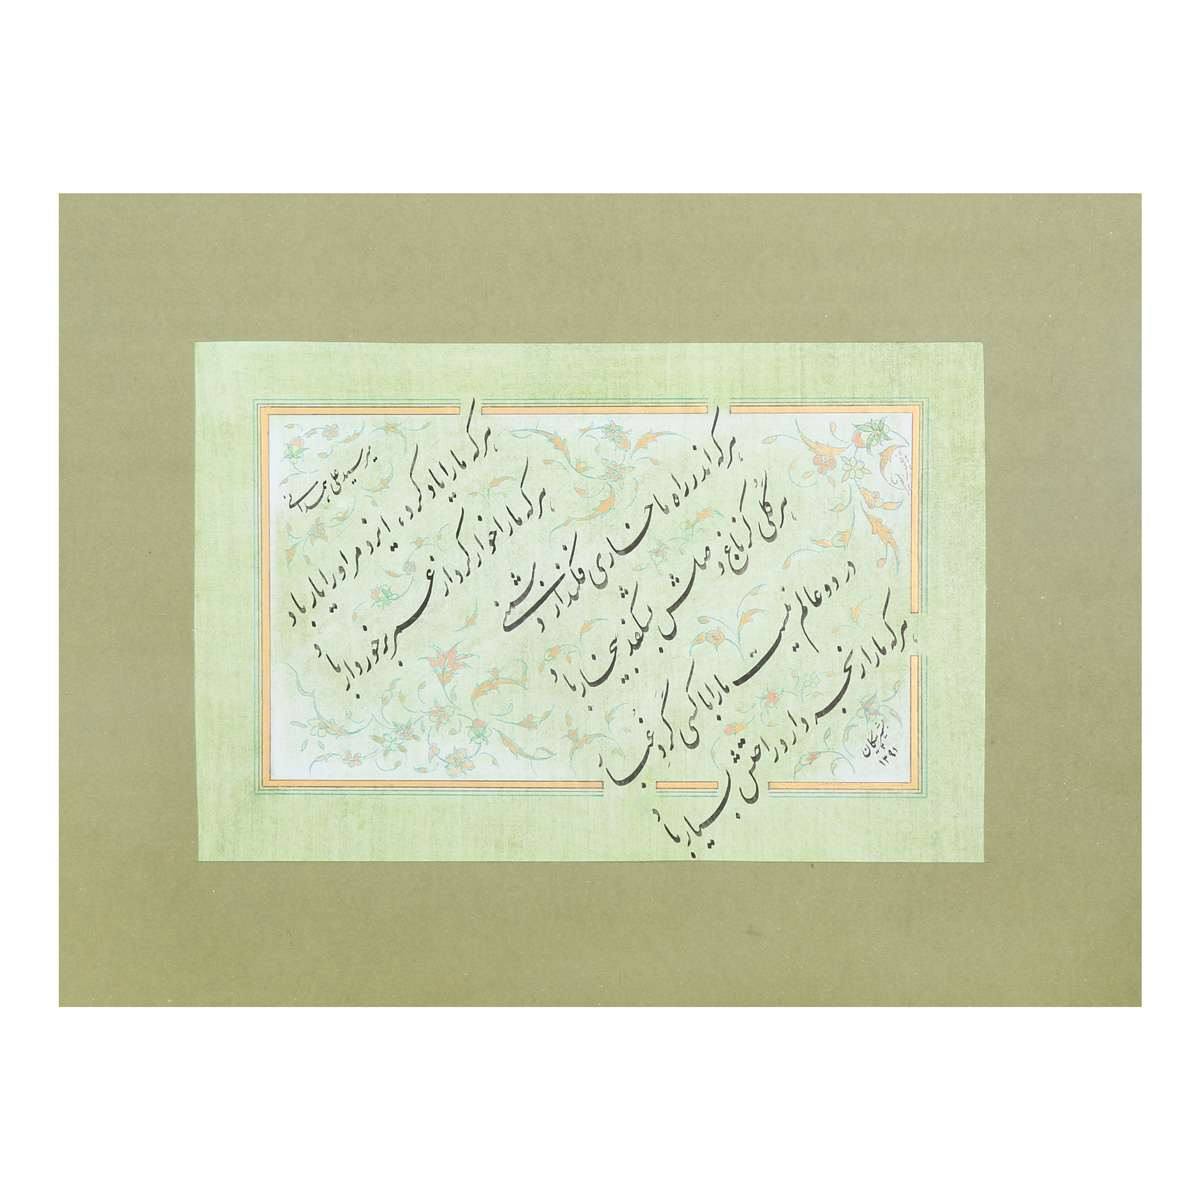 هر که ما را یاد کرد، ایزد مر او را یار باد
هر که ما را خوار کرد از عمر برخوردار باد
هر که اندر راه ما خاری فکند از دشمنی
هر گلی کز باغ وصلش بشکفد بیخار باد
در دو عالم نیست ما را با کسی گرد و غبار
هر که ما را رنجه دارد راحتش بسیار باد
میر سید علی همدانی
پیکان
۱۳۹۱